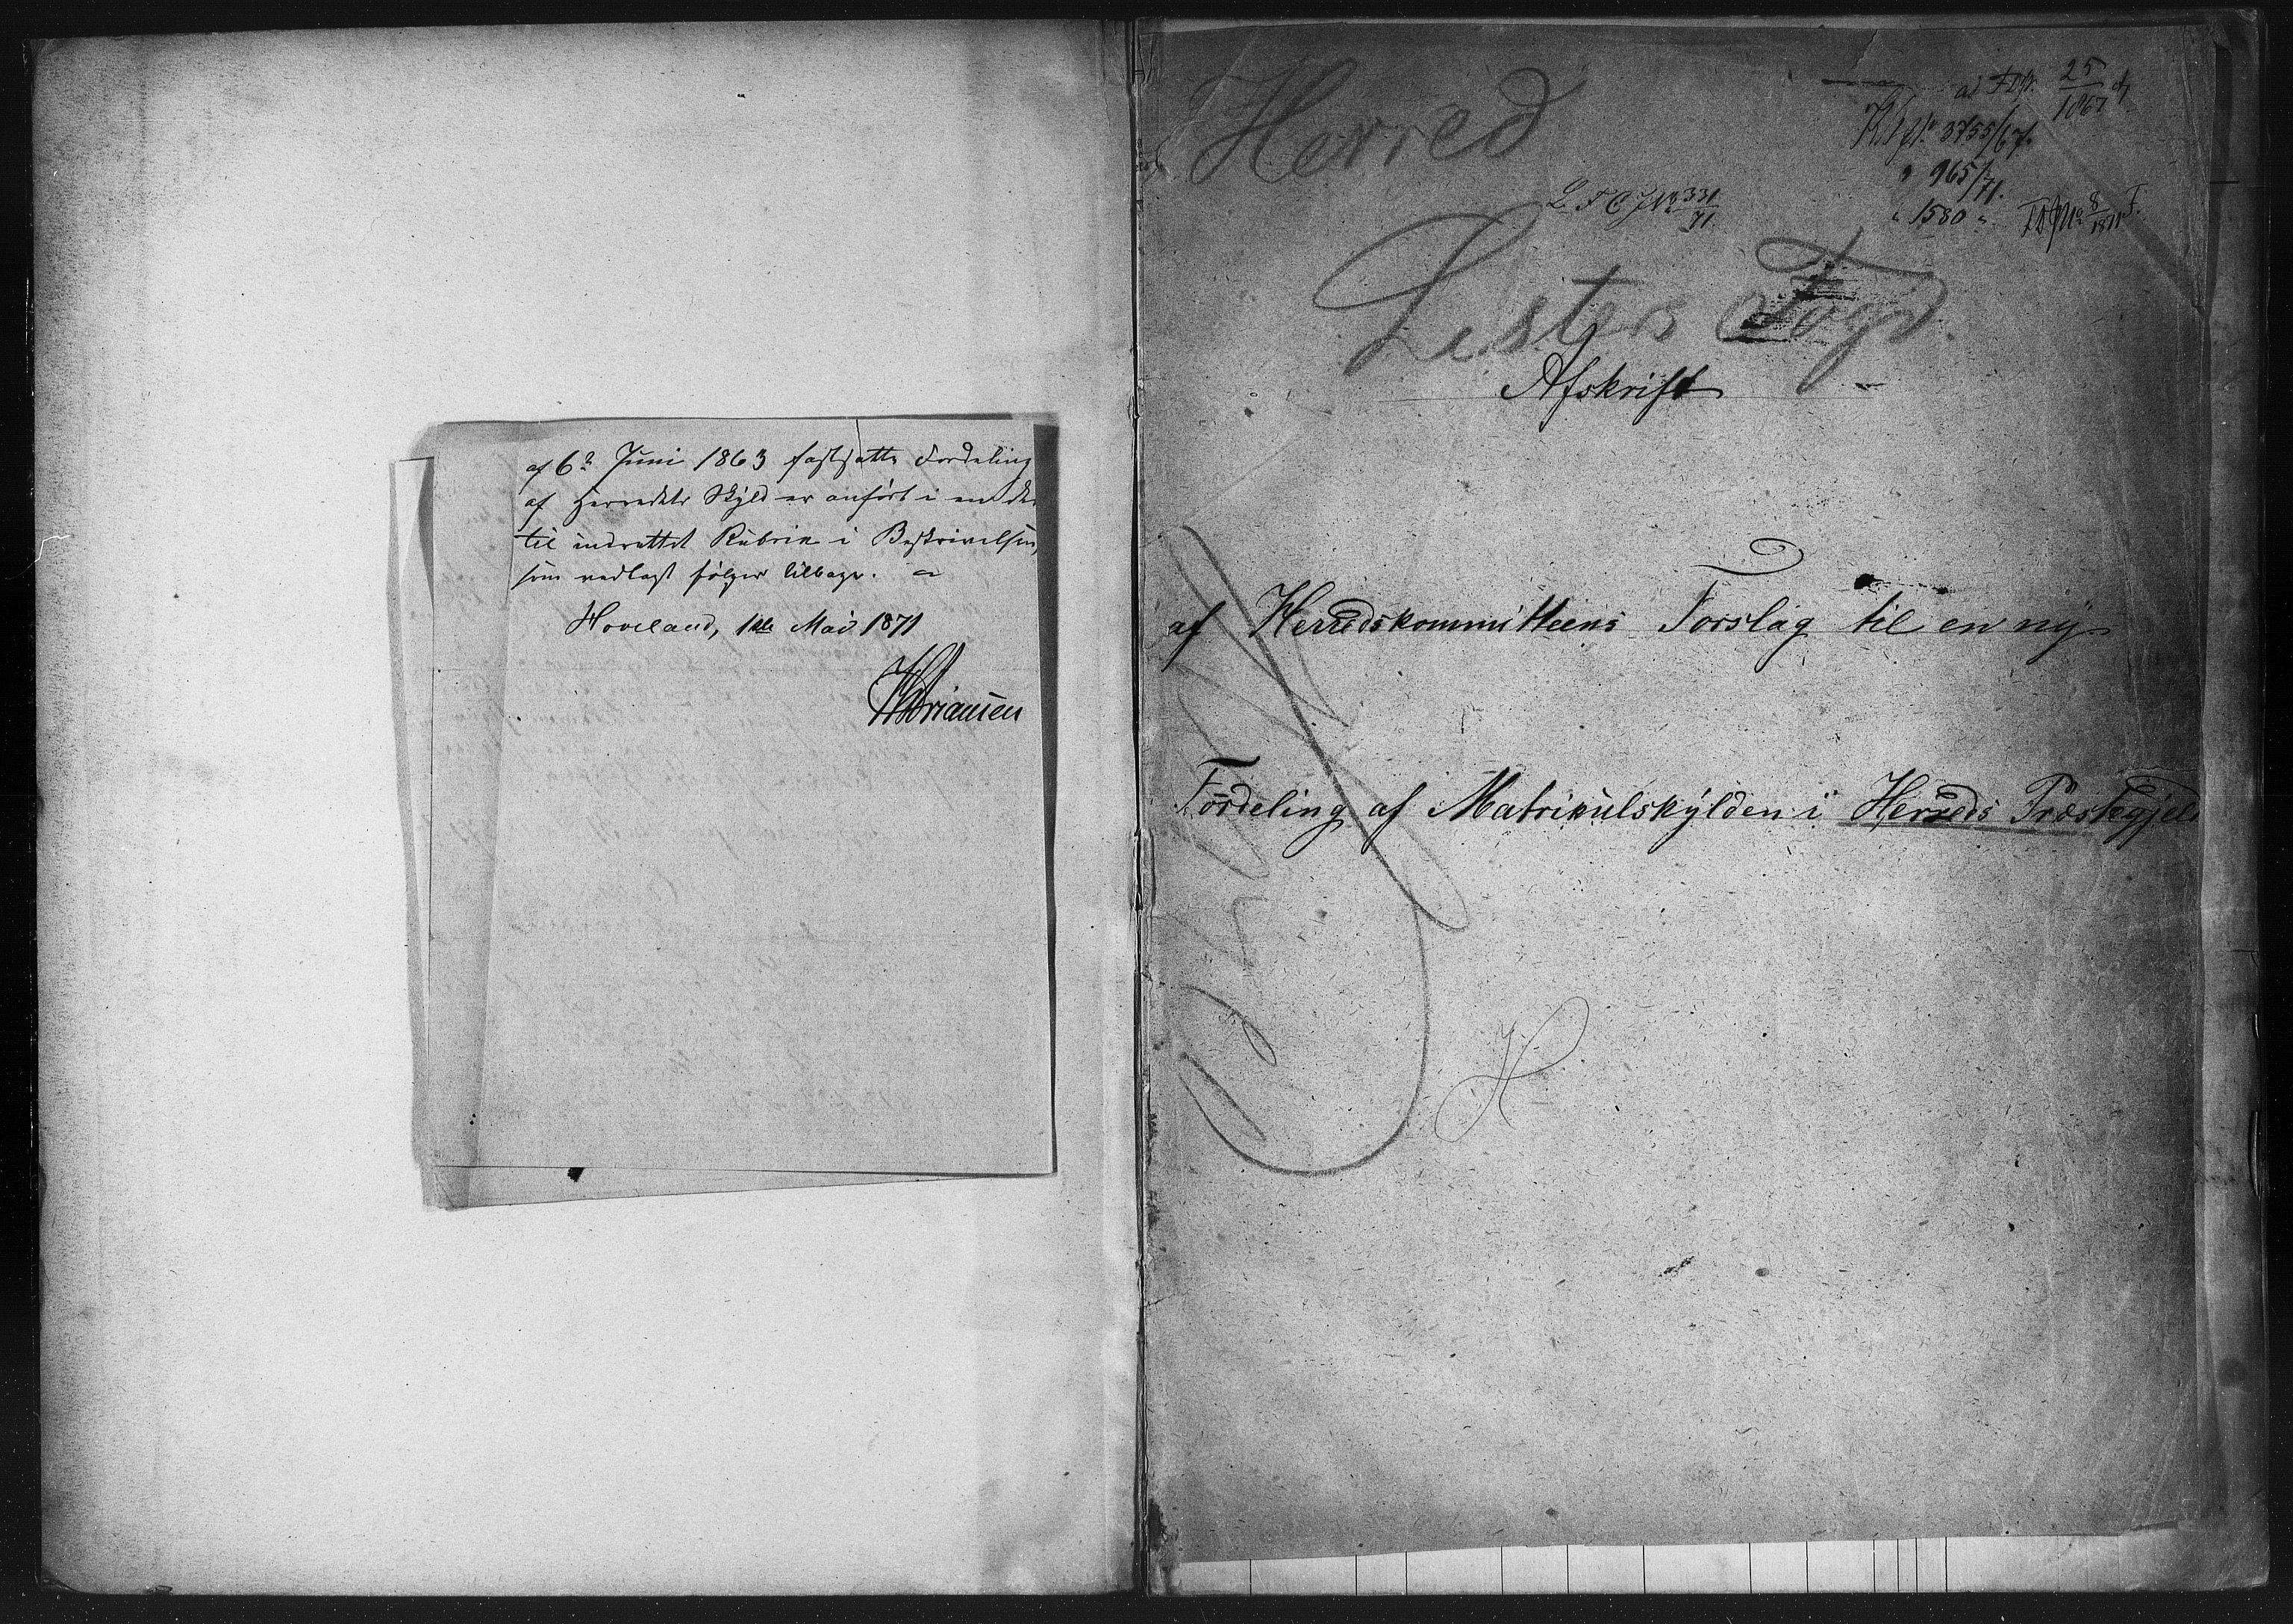 af 6te Juni 1863 fastsatte Fordeling
af Herredets Skyld er anført i en der
til indrettet Rubrik i Beskrivelsen,
som vedlagt følger tilbage.
Hoveland, 1ste Mai 1871
Herred
ad 25/1867
3755/67.
" 965/71.
" 1580 "
8/1871
L F C J No 331/71.
Listers Fogd.
Afskrift
af Herredskommitteens Forslag til en ny
Fordeling af Matrikulskylden i Herreds Præstegjeld
H